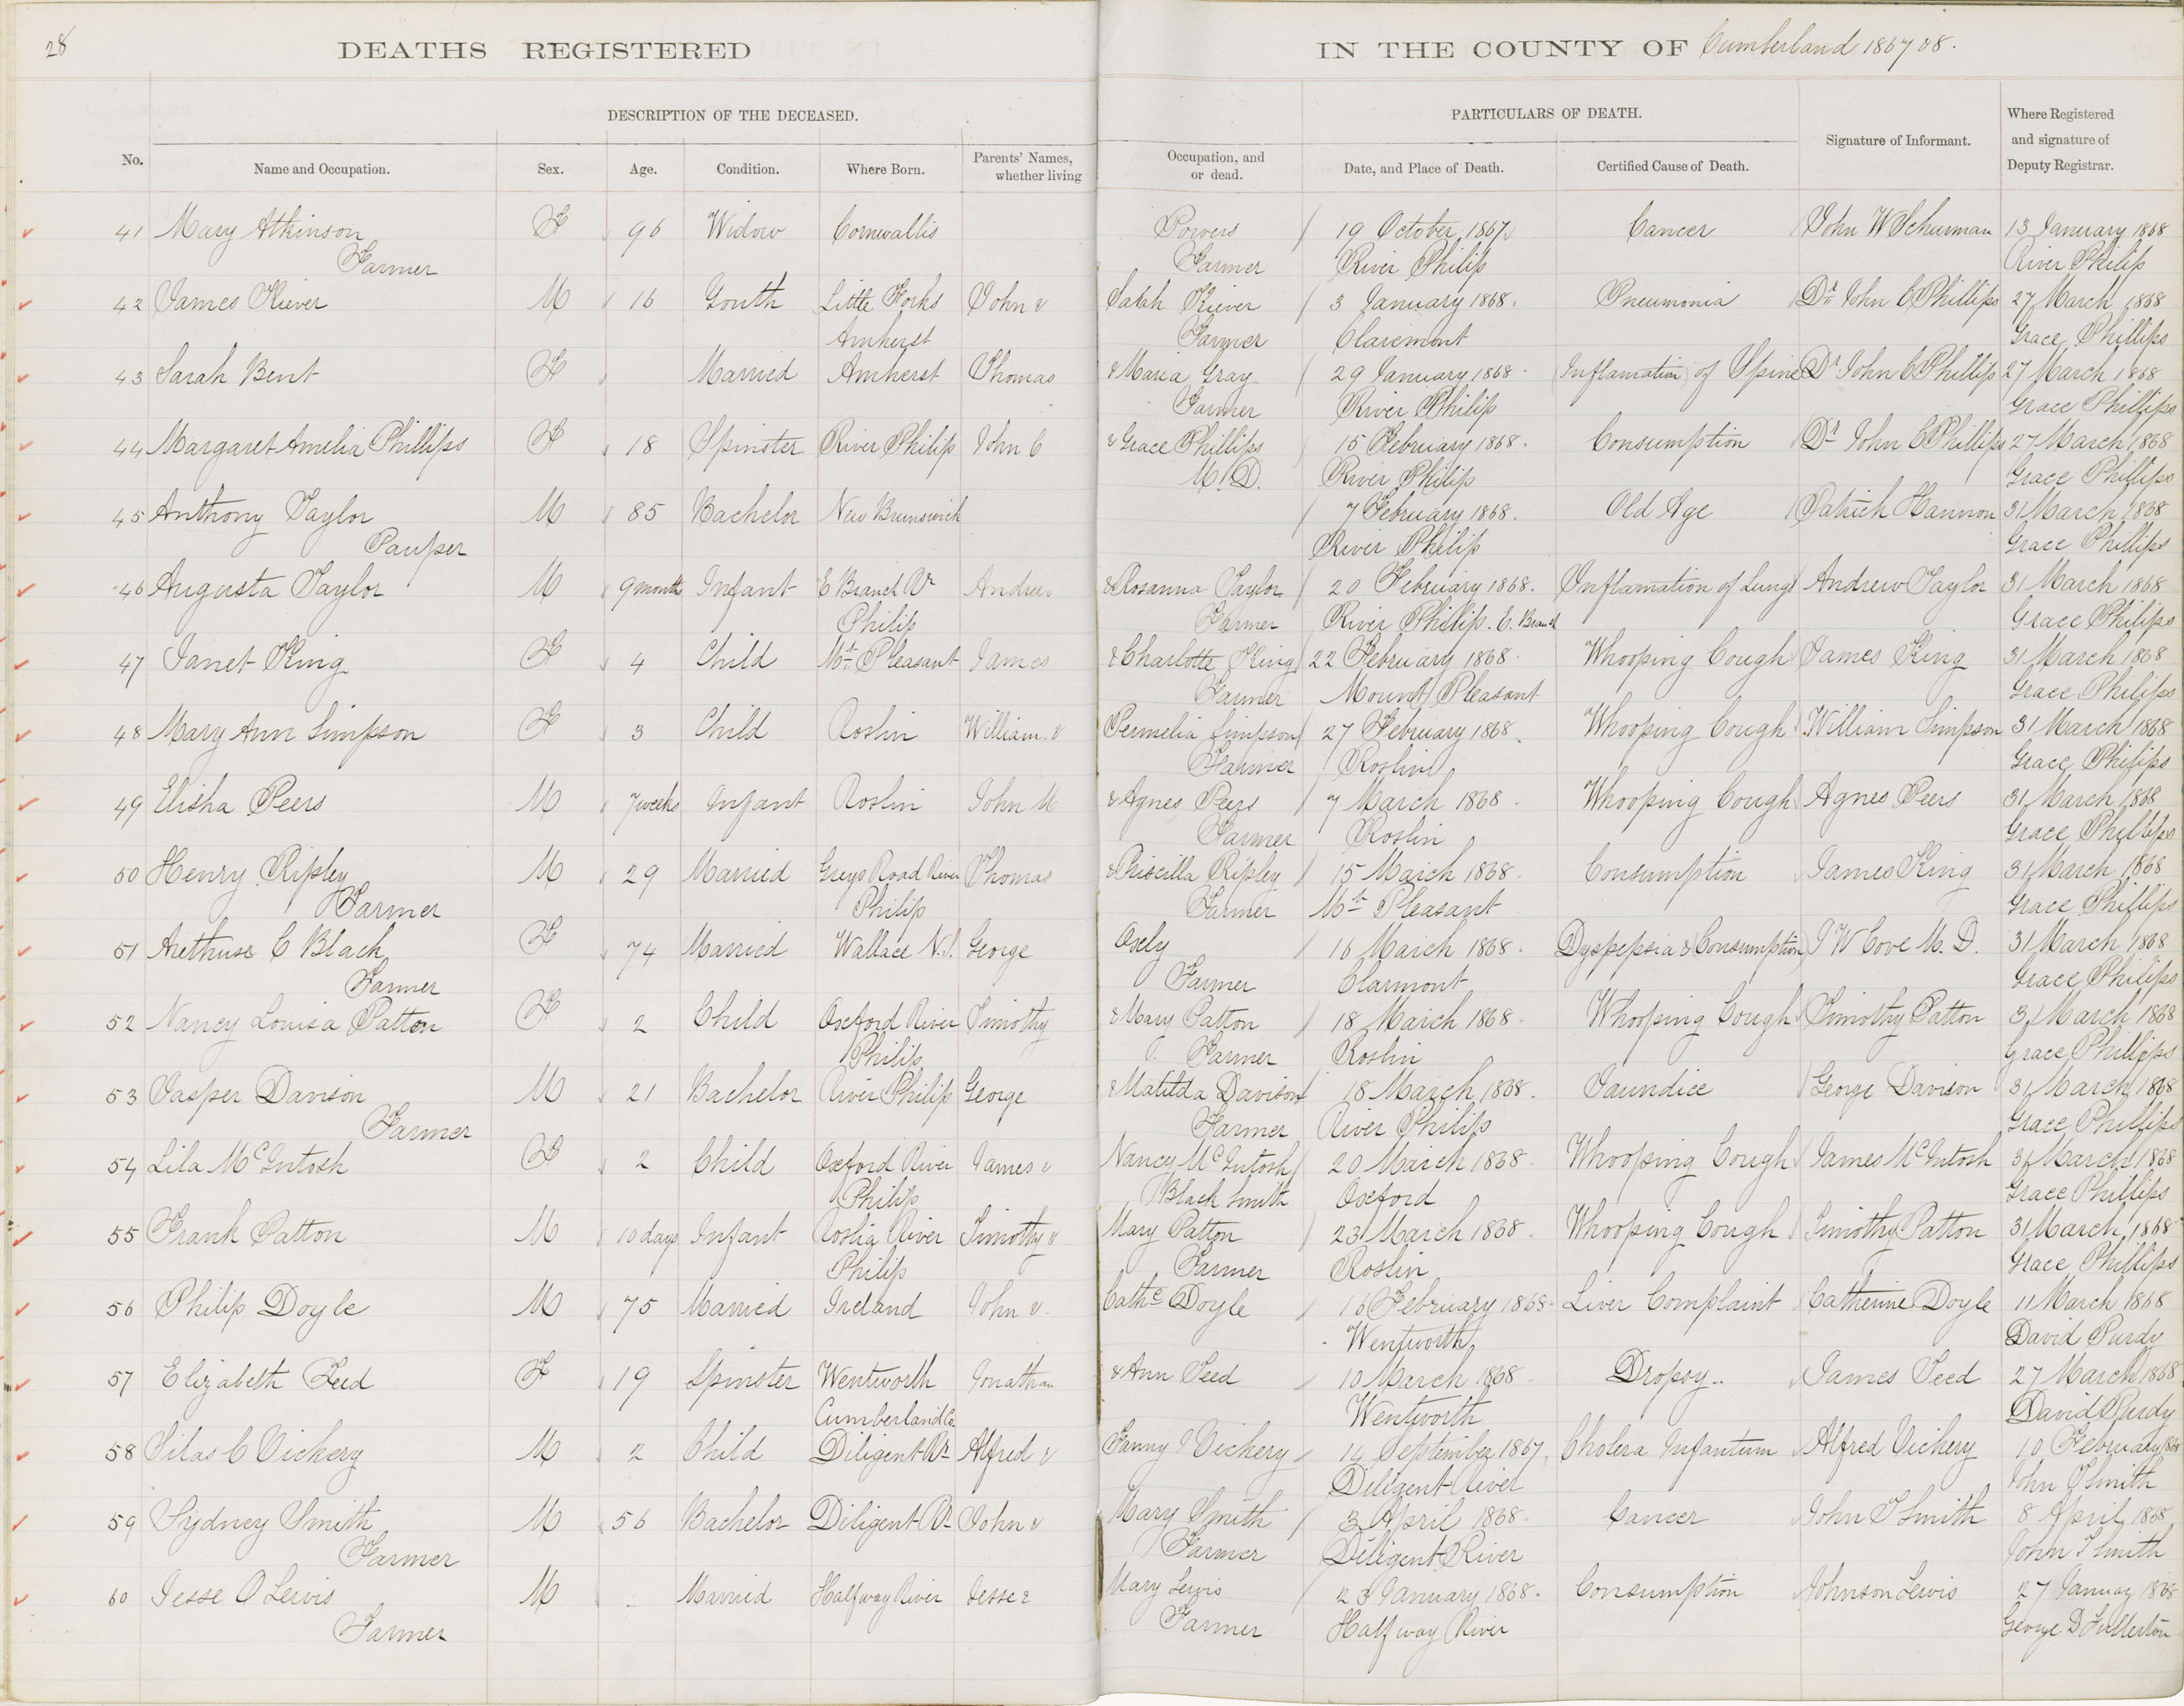 28
DEATHS REGISTERED IN THE COUNTY OF Cumberland 1867 68.
DESCRIPTION OF THE DECEASED. PARTICULARS OF DEATH.
No. Name and Occupation. Sex. Age. Condition. Where Born. Parents' Names, whether living Occupation, and or dead. Date, and Place of Death. Certified Cause of Death. Signature of Informant. Where Registered and signature of Deputy Registrar.
41 Mary Atkinson F 96 Widow Cornwallis Powers 19 October 1867 Cancer John W Schurman 13 January 1868
Farmer Farmer River Philip River Philip
42 James Kiever M 16 Youth Little Forks John & Sarah Kiever 3 January 1868. Pneumonia Dr John C Phillips 27 March 1868
Amherst Farmer Claremont Grace Phillips
43 Sarah Bent F Married Amherst Thomas & Maria Gray 29 January 1868 Inflamation of Spine Dr John C Phillips 27 March 1868
Farmer River Philip Grace Phillips
44 Margaret Amelia Phillips F 18 Spinster River Philip John C & Grace Phillips 15 February 1868. Consumption Dr John C Phillips 27 March 1868
M.D. River Philip Grace Phillips
45 Anthony Taylor M 85 Bachelor New Brunswick 7 February 1868. Old Age Patrick Hannon 31 March 1868
Pauper River Philip Grace Phillips
46 Augusta Taylor M 9 months Infant E Branch Rr Andrew & Rosanna Taylor 20 February 1868. Inflamation of Lungs Andrew Taylor 31 March 1868
Philip Farmer River Philip. E. Branch Grace Philips
47 Janet King F 4 Child Mt Pleasant James & Charlotte King 22 February 1868 Whooping Cough James King 31 March 1868
Farmer Mount Pleasant Grace Philips
48 Mary Ann Simpson F 3 Child Roslin William & Permelia Simpson 27 February 1868. Whooping Cough William Simpson 31 March 1868
Farmer Roslin Grace Philips
49 Elisha Peers M 7 weeks Infant Roslin John M & Agnes Peers 7 March 1868. Whooping Cough Agnes Peers 31 March 1868
Farmer Roslin Grace Phillips
50 Henry Ripley M 29 Married Greys Road River Thomas & Priscilla Ripley 15 March 1868. Consumption James King 31 March 1868
Farmer Philip Farmer Mt Pleasant Grace Phillips
51 Arethusa C Black F 74 Married Wallace N.S. George Oxely 16 March 1868. Dyspepsia & Consumption J W Cove M.D. 31 March 1868
Farmer Farmer Clarmont Grace Philips
52 Nancy Louisa Patton F 2 Child Oxford River Timothy & Mary Patton 18 March 1868. Whooping Cough Timothy Patton 31 March 1868
Philip Farmer Roslin Grace Phillips
53 Jasper Davison M 21 Bachelor River Philip George & Matilda Davison 18 March 1868. Jaundice George Davison 31 March 1868
Farmer Farmer River Philip Grace Phillips
54 Lila McIntosh F 2 Child Oxford River James & Nancy McIntosh 20 March 1868. Whooping Cough James McIntosh 31 March 1868
Philip Black Smith Oxford Grace Phillips
55 Frank Patton M 10 days Infant Roslin River Timothy & Mary Patton 23 March 1868. Whooping Cough Timothy Patton 31 March 1868
Philip Farmer Roslin Grace Phillips
56 Philip Doyle M 75 Married Ireland John & Cathe Doyle 16 February 1868. Liver Complaint Catherine Doyle 11 March 1868
Wentworth David Purdy
57 Elizabeth Teed F 19 Spinster Wentworth Jonathan & Ann Teed 10 March 1868 Dropsy.. James Teed 27 March 1868
Cumberland Co Wentworth David Purdy
58 Silas C Vickery M 2 Child Diligent Rr Alfred & Fanny J Vickery 14 September 1867, Cholera Infantum Alfred Vickery 10 February 1868
Diligent River John T Smith
59 Sydney Smith M 56 Bachelor Diligent Rr John & Mary Smith 3 April 1868. Cancer John T Smith 8 April 1868
Farmer Farmer Diligent River John T Smith
60 Jesse O Lewis M Married Halfway River Jesse & Mary Lewis 23 January 1868. Consumption Johnson Lewis 27 January 1868
Farmer Farmer Half way River George D Fullerton